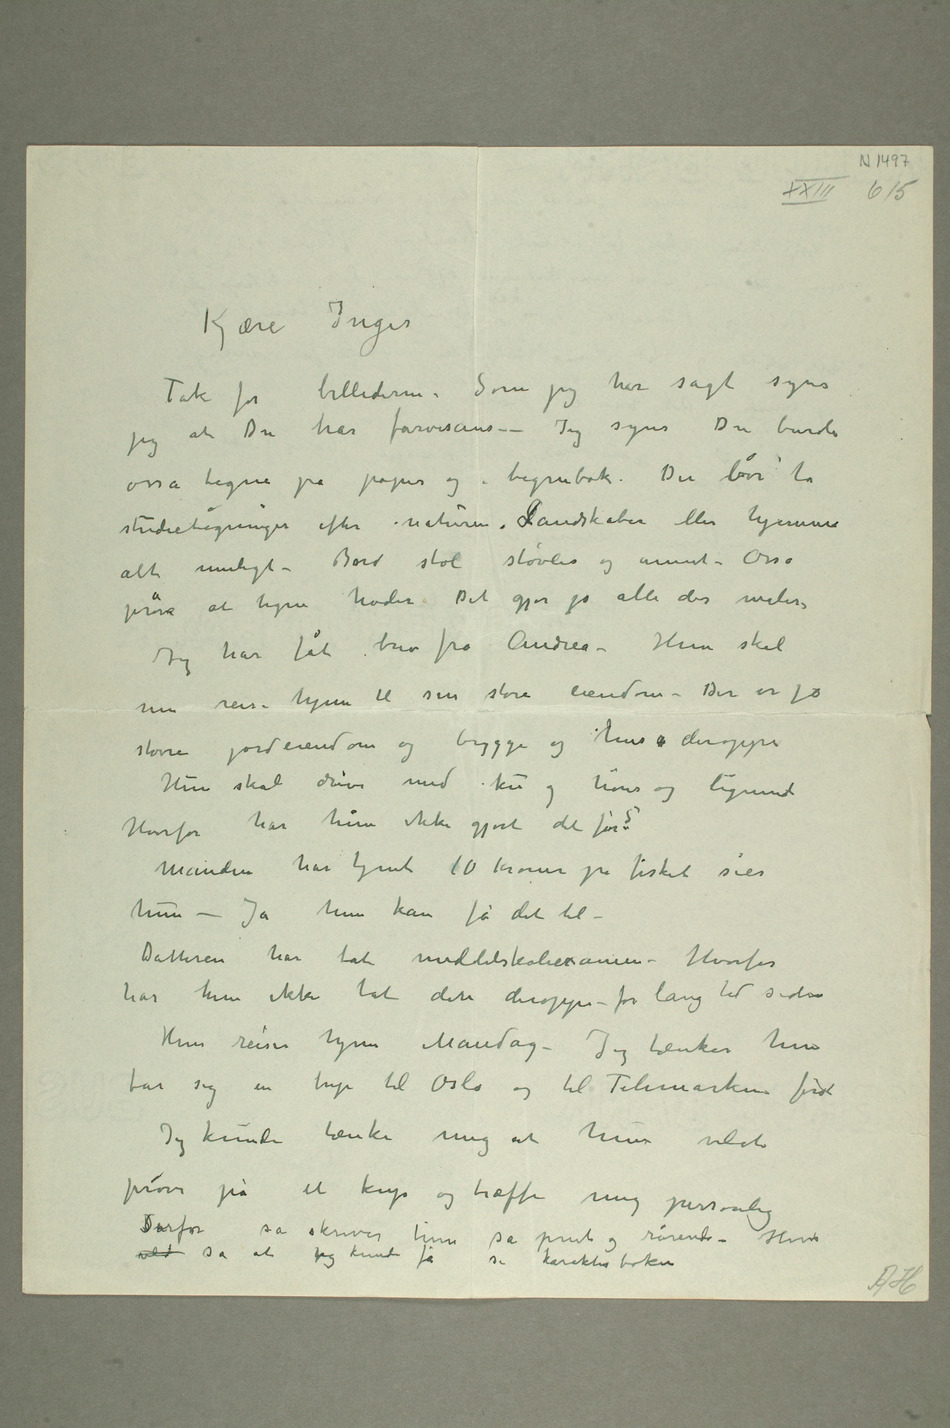 N 1497
XXIII 6/5
Kjære Inger
Tak for billederne. Som jeg har sagt synes
jeg at Du har farvesans – Jeg synes Du burde
osså tegne på papir og i tegnebok. Du bør ta
studietegninger efter naturen. Landskaber eller hjemme
alt muligt – Bord stol støvler og annet – Osså
prøve at tegne hoder. Det gjør jo alle der maler.
Jeg har fåt brev fra Andrea – Hun skal
nu reise hjem til sin store eiendom – Der er jo
større jordeiendom og brygge og hus deroppe
Hun skal drive med ku og høns og lignende
Hvorfor har hun ikke gjort det før?
Manden har tjent 10 kroner på fisket sier
hun – Ja hun kan få det til –
Datteren har tat middelskoleexamen – Hvorfor
har hun ikke tat den deroppe for lang tid siden
Hun reiser hjem Mandag – Jeg tænker hun
tar sig en trip til Oslo og til Telemarken først
Jeg kunde tænke mig at hun vilde
prøve på et knep og træffe mig personlig
Derfor så skriver hun så pent og rørende – Hun
så at jeg kunde få se karakterboken